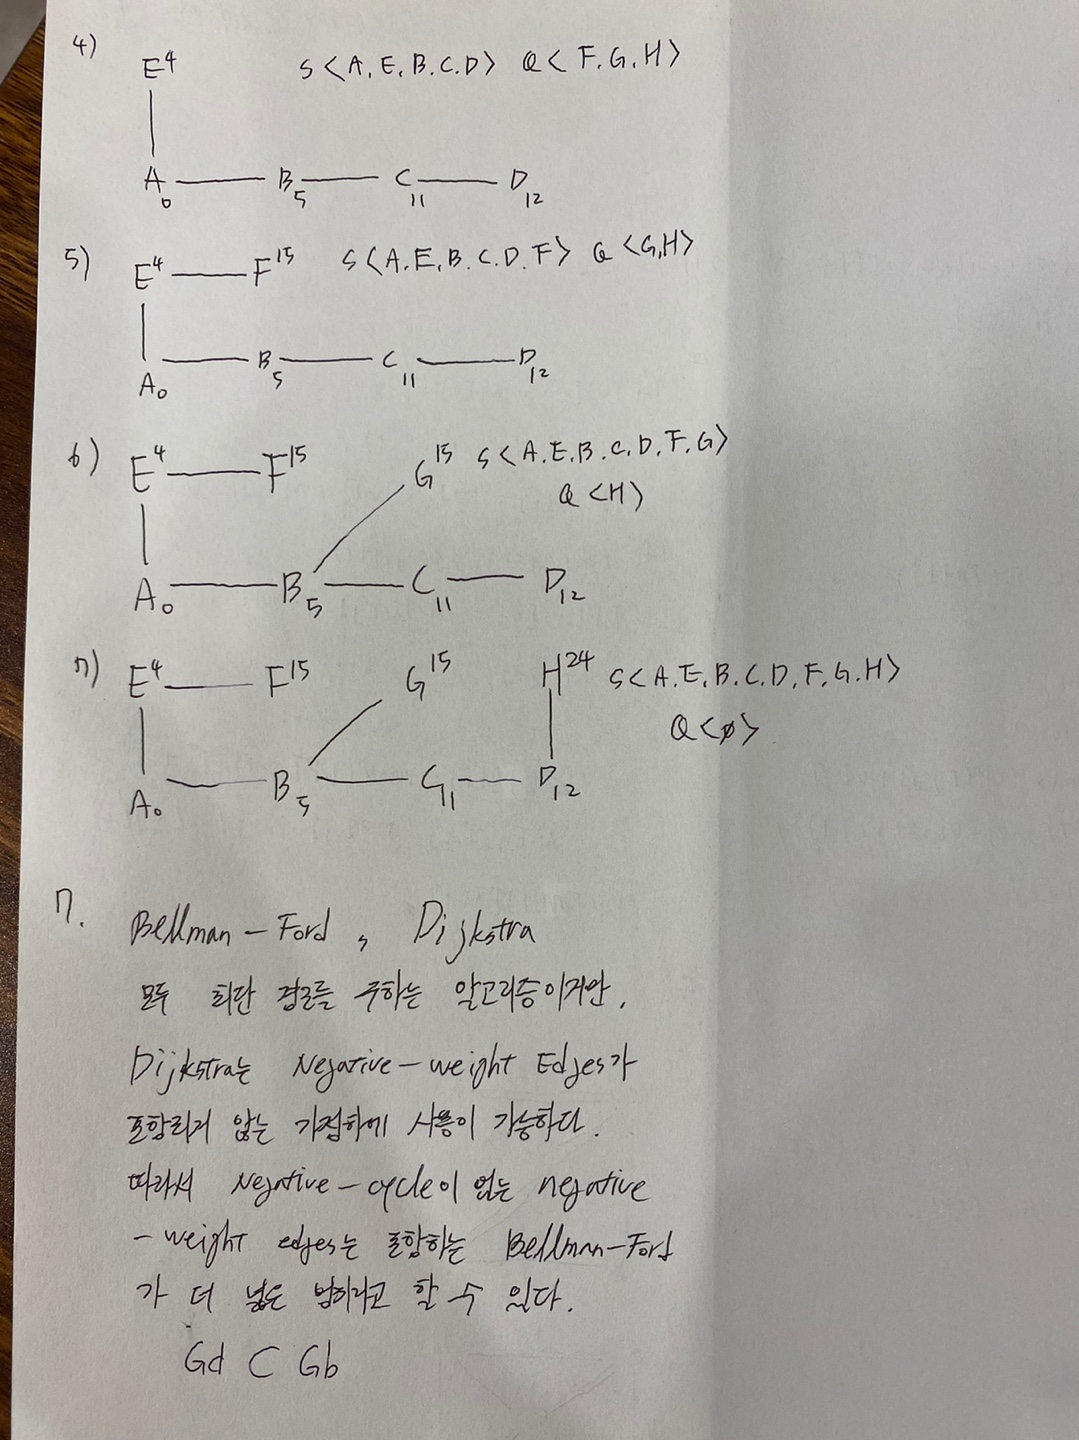 4)
E4 S<A.E.B.C.D> Q<F.G.H>
A0 B5 C11 D12
5)
E4 F15 S<A.E.B.C.D.F> Q<G,H>
A0 B5 C11 D12
6)
E4 F15 G15 S<A.E.B.C.D.F.G>
Q<H>
A0 B5 C11 D12
7)
E4 F15 G15 H24 S<A.E.B.C.D.F.G.H>
Q<∅>
A0 B5 C11 D12
7.
Bellman-Ford, Dijkstra
모두 최단 경로를 구하는 알고리즘이지만,
Dijkstra는 Negative-weight Edges가
포함되지 않는 가정하에 사용이 가능하다.
따라서 Negative-cycle이 없는 negative
-weight edges는 포함하는 Bellman-Ford
가 더 넓은 범위라고 할 수 있다.
Gd ⊂ Gb